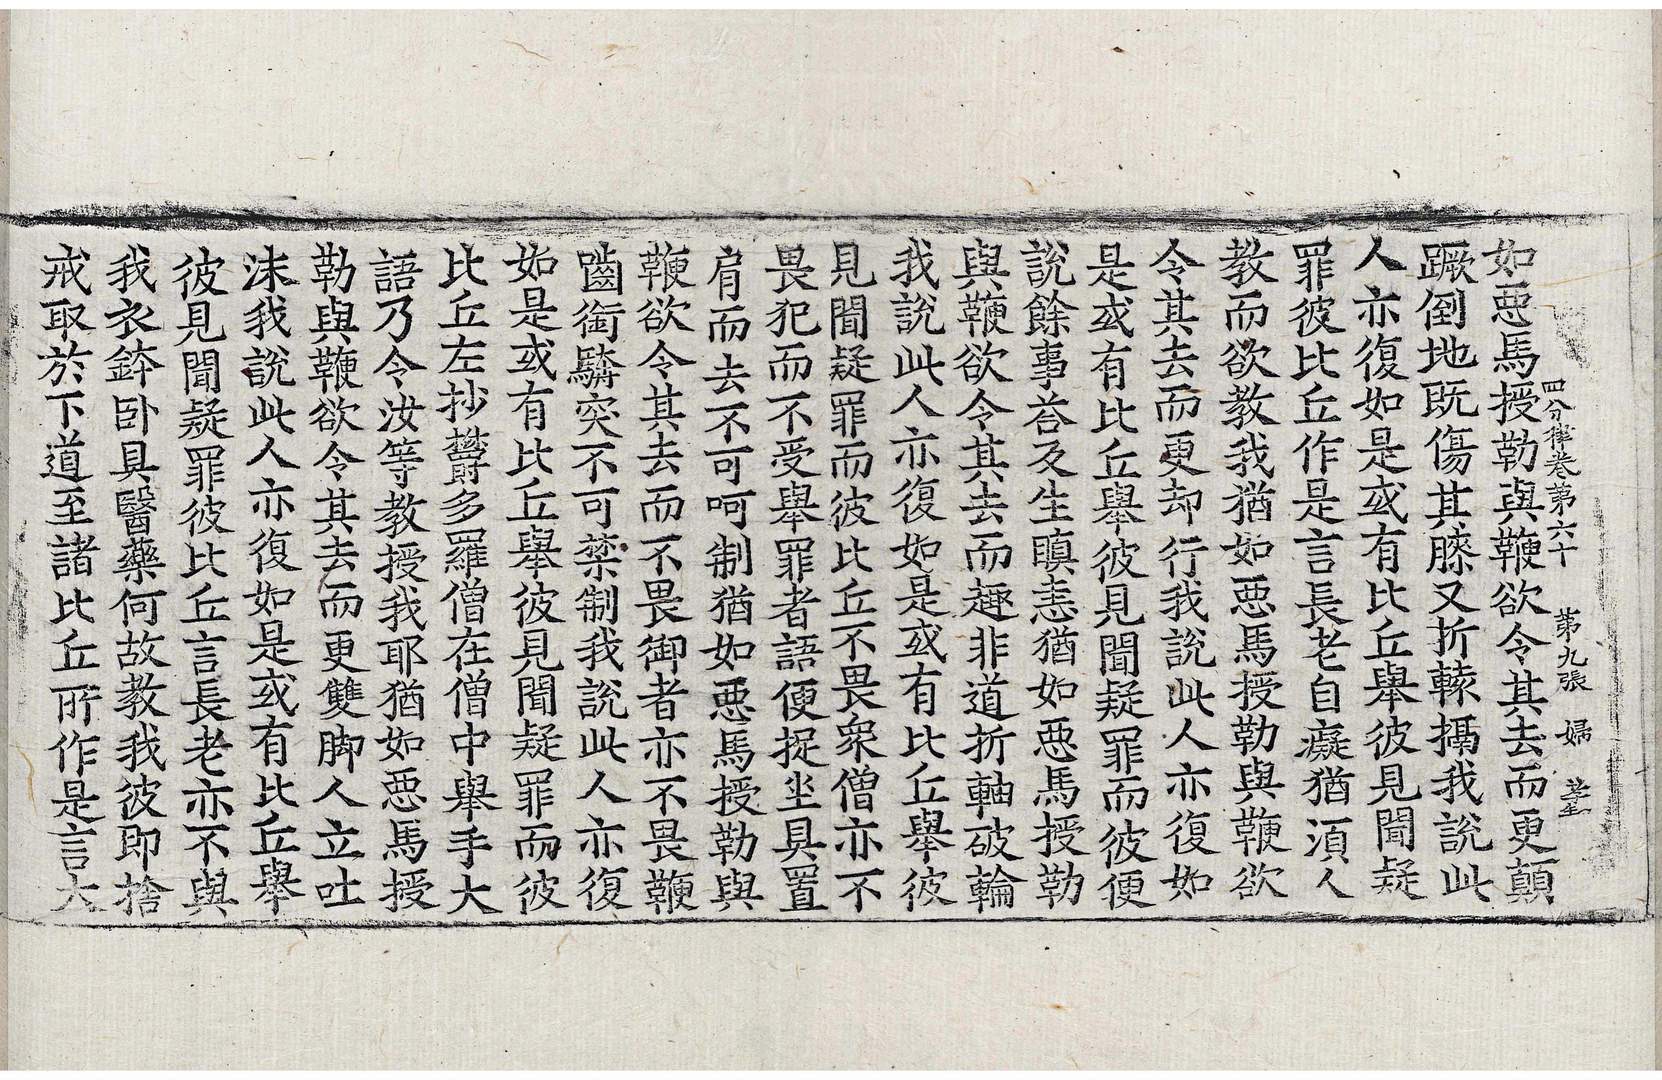 四分律卷第六十 第九張 婦
如惡馬授勒與鞭欲令其去而更顛
蹶倒地既傷其膝又折轅槅我說此
人亦復如是或有比丘舉彼見聞疑
罪彼比丘作是言長老自癡猶須人
教而欲教我猶如惡馬授勒與鞭欲
令其去而更却行我說此人亦復如
是或有比丘舉彼見聞疑罪而彼便
說餘事荅反生瞋恚猶如惡馬授勒
與鞭欲令其去而趣非道折軸破輪
我說此人亦復如是或有比丘舉彼
見聞疑罪而彼比丘不畏衆僧亦不
畏犯而不受舉罪者語便捉坐具置
肩而去不可呵制猶如惡馬授勒與
鞭欲令其去而不畏御者亦不畏鞭
嚙銜騁突不可禁制我說此人亦復
如是或有比丘舉彼見聞疑罪而彼
比丘左抄欝多羅僧在僧中舉手大
語乃令汝等教授我耶猶如惡馬授
勒與鞭欲令其去而更雙脚人立吐
沫我說此人亦復如是或有比丘舉
彼見聞疑罪彼比丘言長老亦不與
我衣鉢卧具醫藥何故教我彼即捨
戒取於下道至諸比丘所作是言大